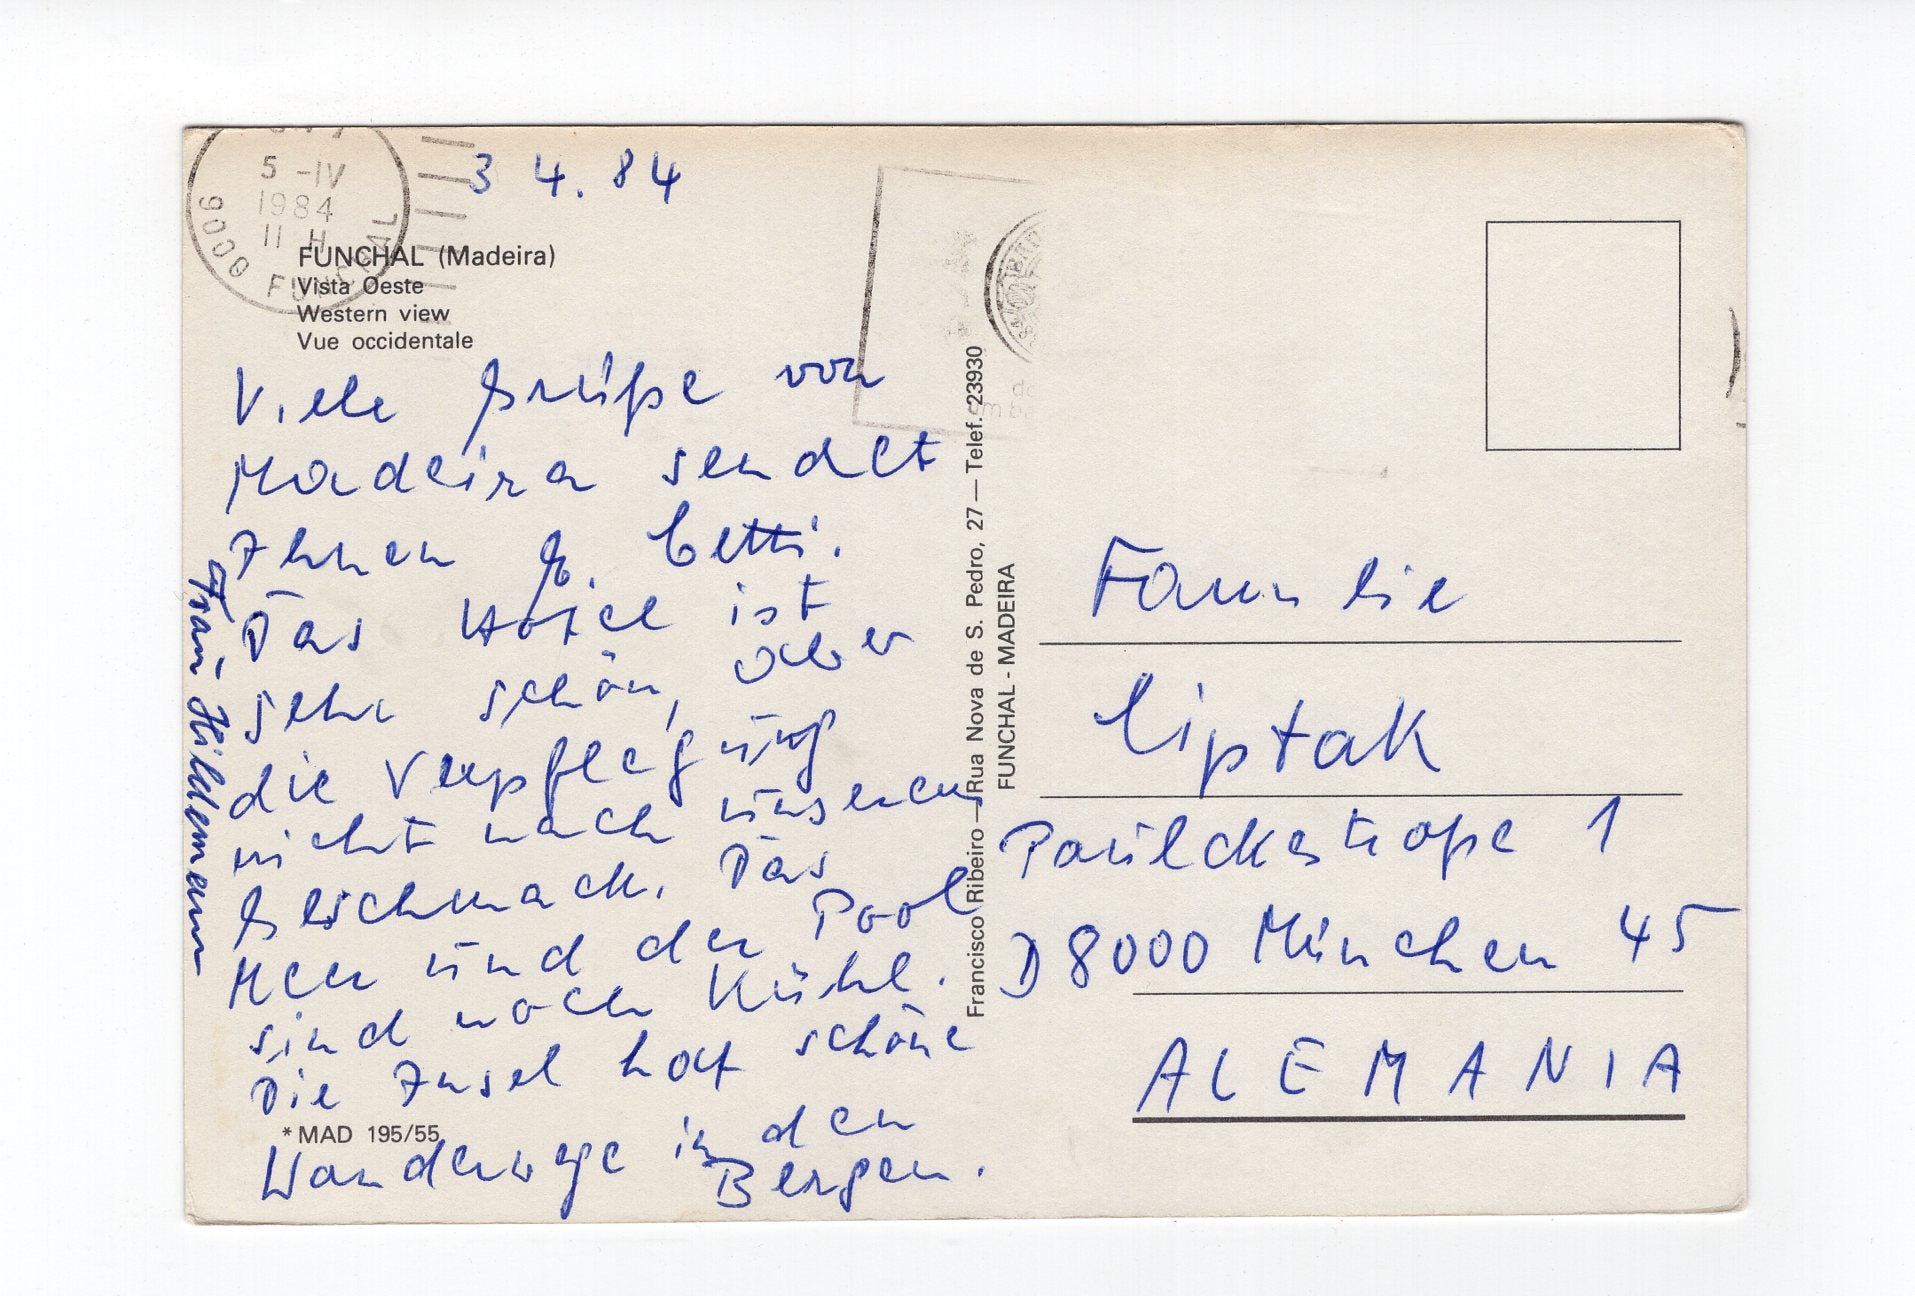 5 -IV
1984
11 H
9000 FUNCHAL
3 4. 84
FUNCHAL (Madeira)
Vista Oeste
Western view
Vue occidentale
Viele Grüße von
Madeira sendet
Ihnen G. Cetti.
Das Hotel ist
sehr schön, aber
die Verpflegung
nicht nach unserem
Geschmack. Das
Meer und der Pool
sind noch kühl.
Die Insel hat schöne
Wanderwege in den
Bergen.
Frau Hildemann
*MAD 195/55
Francisco Ribeiro — Rua Nova de S. Pedro, 27 — Telef. 23930
FUNCHAL - MADEIRA
Familie
Liptak
Paulckestraße 1
D 8000 München 45
ALEMANIA